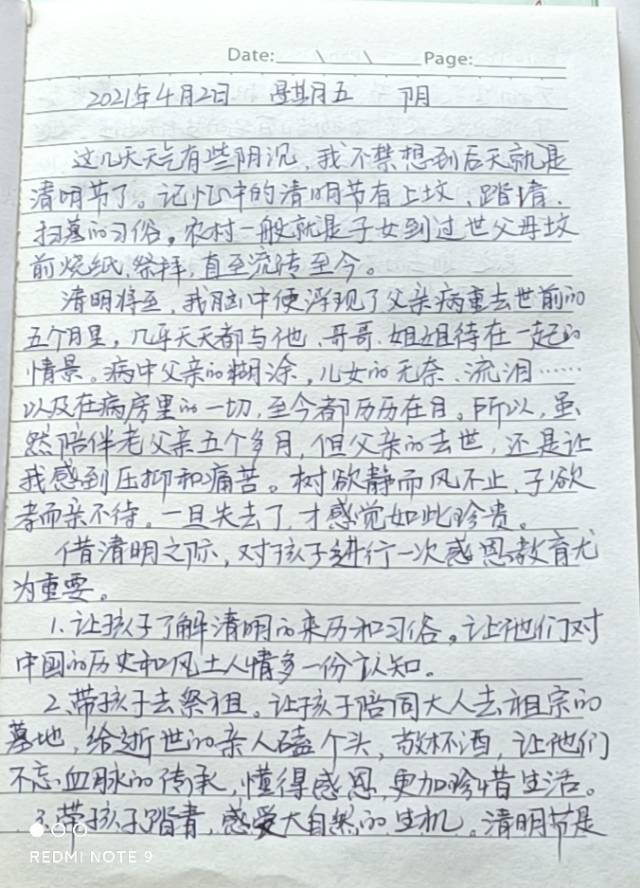 Date: \ \ Page:
2021年4月2日 星期五 阴
这几天天气有些阴沉，我不禁想到后天就是
清明节了。记忆中的清明节有上坟、踏清、
扫墓的习俗。农村一般就是子女到过世父母坟
前烧纸、祭拜，直至流传至今。
清明将至，我脑中便浮现了父亲病重去世前的
五个月里，几乎天天都与他、哥哥、姐姐待在一起的
情景。病中父亲的糊涂，儿女的无奈、流泪……
以及在病房里的一切，至今都历历在目。所以，虽
然陪伴老父亲五个多月，但父亲的去世，还是让
我感到压抑和痛苦。树欲静而风不止，子欲
孝而亲不待。一旦失去了，才感觉如此珍贵。
借清明之际，对孩子进行一次感恩教育尤
为重要。
1.让孩子了解清明的来历和习俗。让他们对
中国的历史和风土人情多一份认知。
2.带孩子去祭祖。让孩子陪同大人去祖宗的
墓地，给逝世的亲人磕个头，敬杯酒，让他们
不忘血脉的传承，懂得感恩，更加珍惜生活。
3.带孩子踏青，感受大自然的生机。清明节是
REDMI NOTE 9